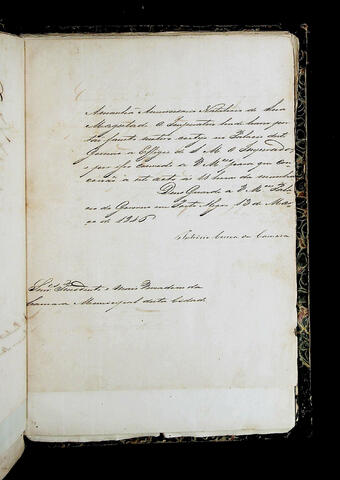 Amanhã Anniversario Natalicio de Sua
Magestade O Imperador
no Palacio do
Governo a Effigie de S. M. O Imperador
por isso convido a V. Mces para que con-
a este acto as 11 horas da manhã
Deos Guarde a V. Mces Pala-
cio do Governo em Porto Alegre 13 de Mar-
ço de 1845
Patricio Correa da Camara
Snrs. Presidente e mais Vereadores da
Camara Municipal desta Cidade